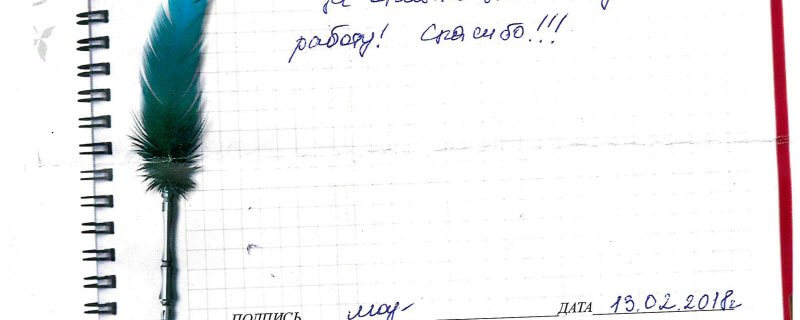 за
работу! Спасибо!!!
ПОДПИСЬ ДАТА 13.02.2018г